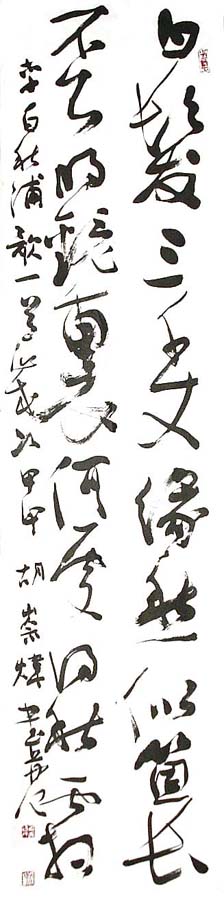 白髮三千丈緣愁似箇長
不知明鏡裏何處得秋霜
李白秋浦歌一首 歲次甲申 胡崇煒